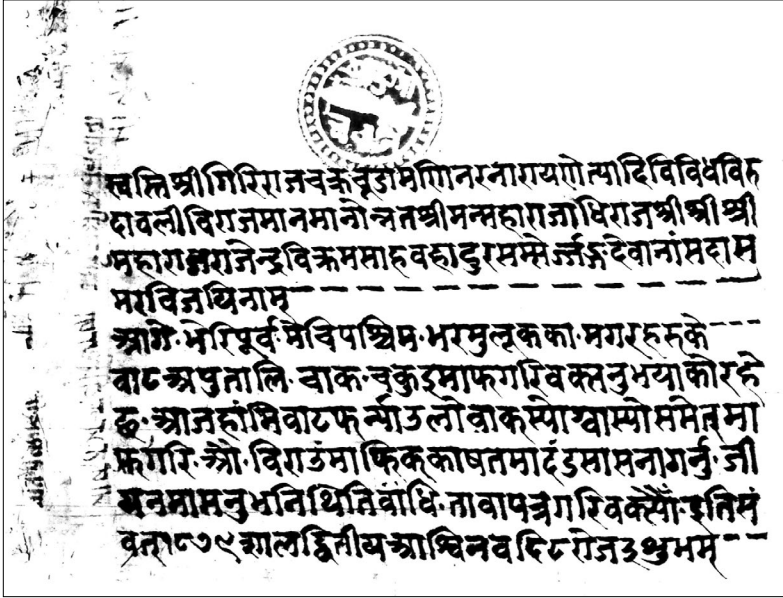 स्वस्ति श्रीगिरिराजचक्रचूडामणिनरनारायणेत्यादिविविधविरु
दावलीविराजमानमानोन्नतश्रीमन्महाराजाधिराजश्रीश्रीश्री
महाराजराजेन्द्रविक्रमसाहवहादुरसम्सेर्ज्जङ्गदेवानांसदास
मरविजयिनाम्
आगे भेरिपूर्व मेचिपश्चिम भरमुलूकका मगरहरुके
वाट अपुतालि चाक चकुइ माफगरिवक्सनुभयाकोरहे
छ आजहांभिवाट फर्न्याउलोवाकस्योश्वास्योसमेतमा
फगरि औ विराउंमाफिक्काषतमादंडसासनागर्नु जी
यनमासनुभनिथितिवाधि तावापत्रगरिवक्स्यौं इतिसं
वत् १८७९ साल द्वितीयआश्विनवदि ८ रोज ३ शुभम्